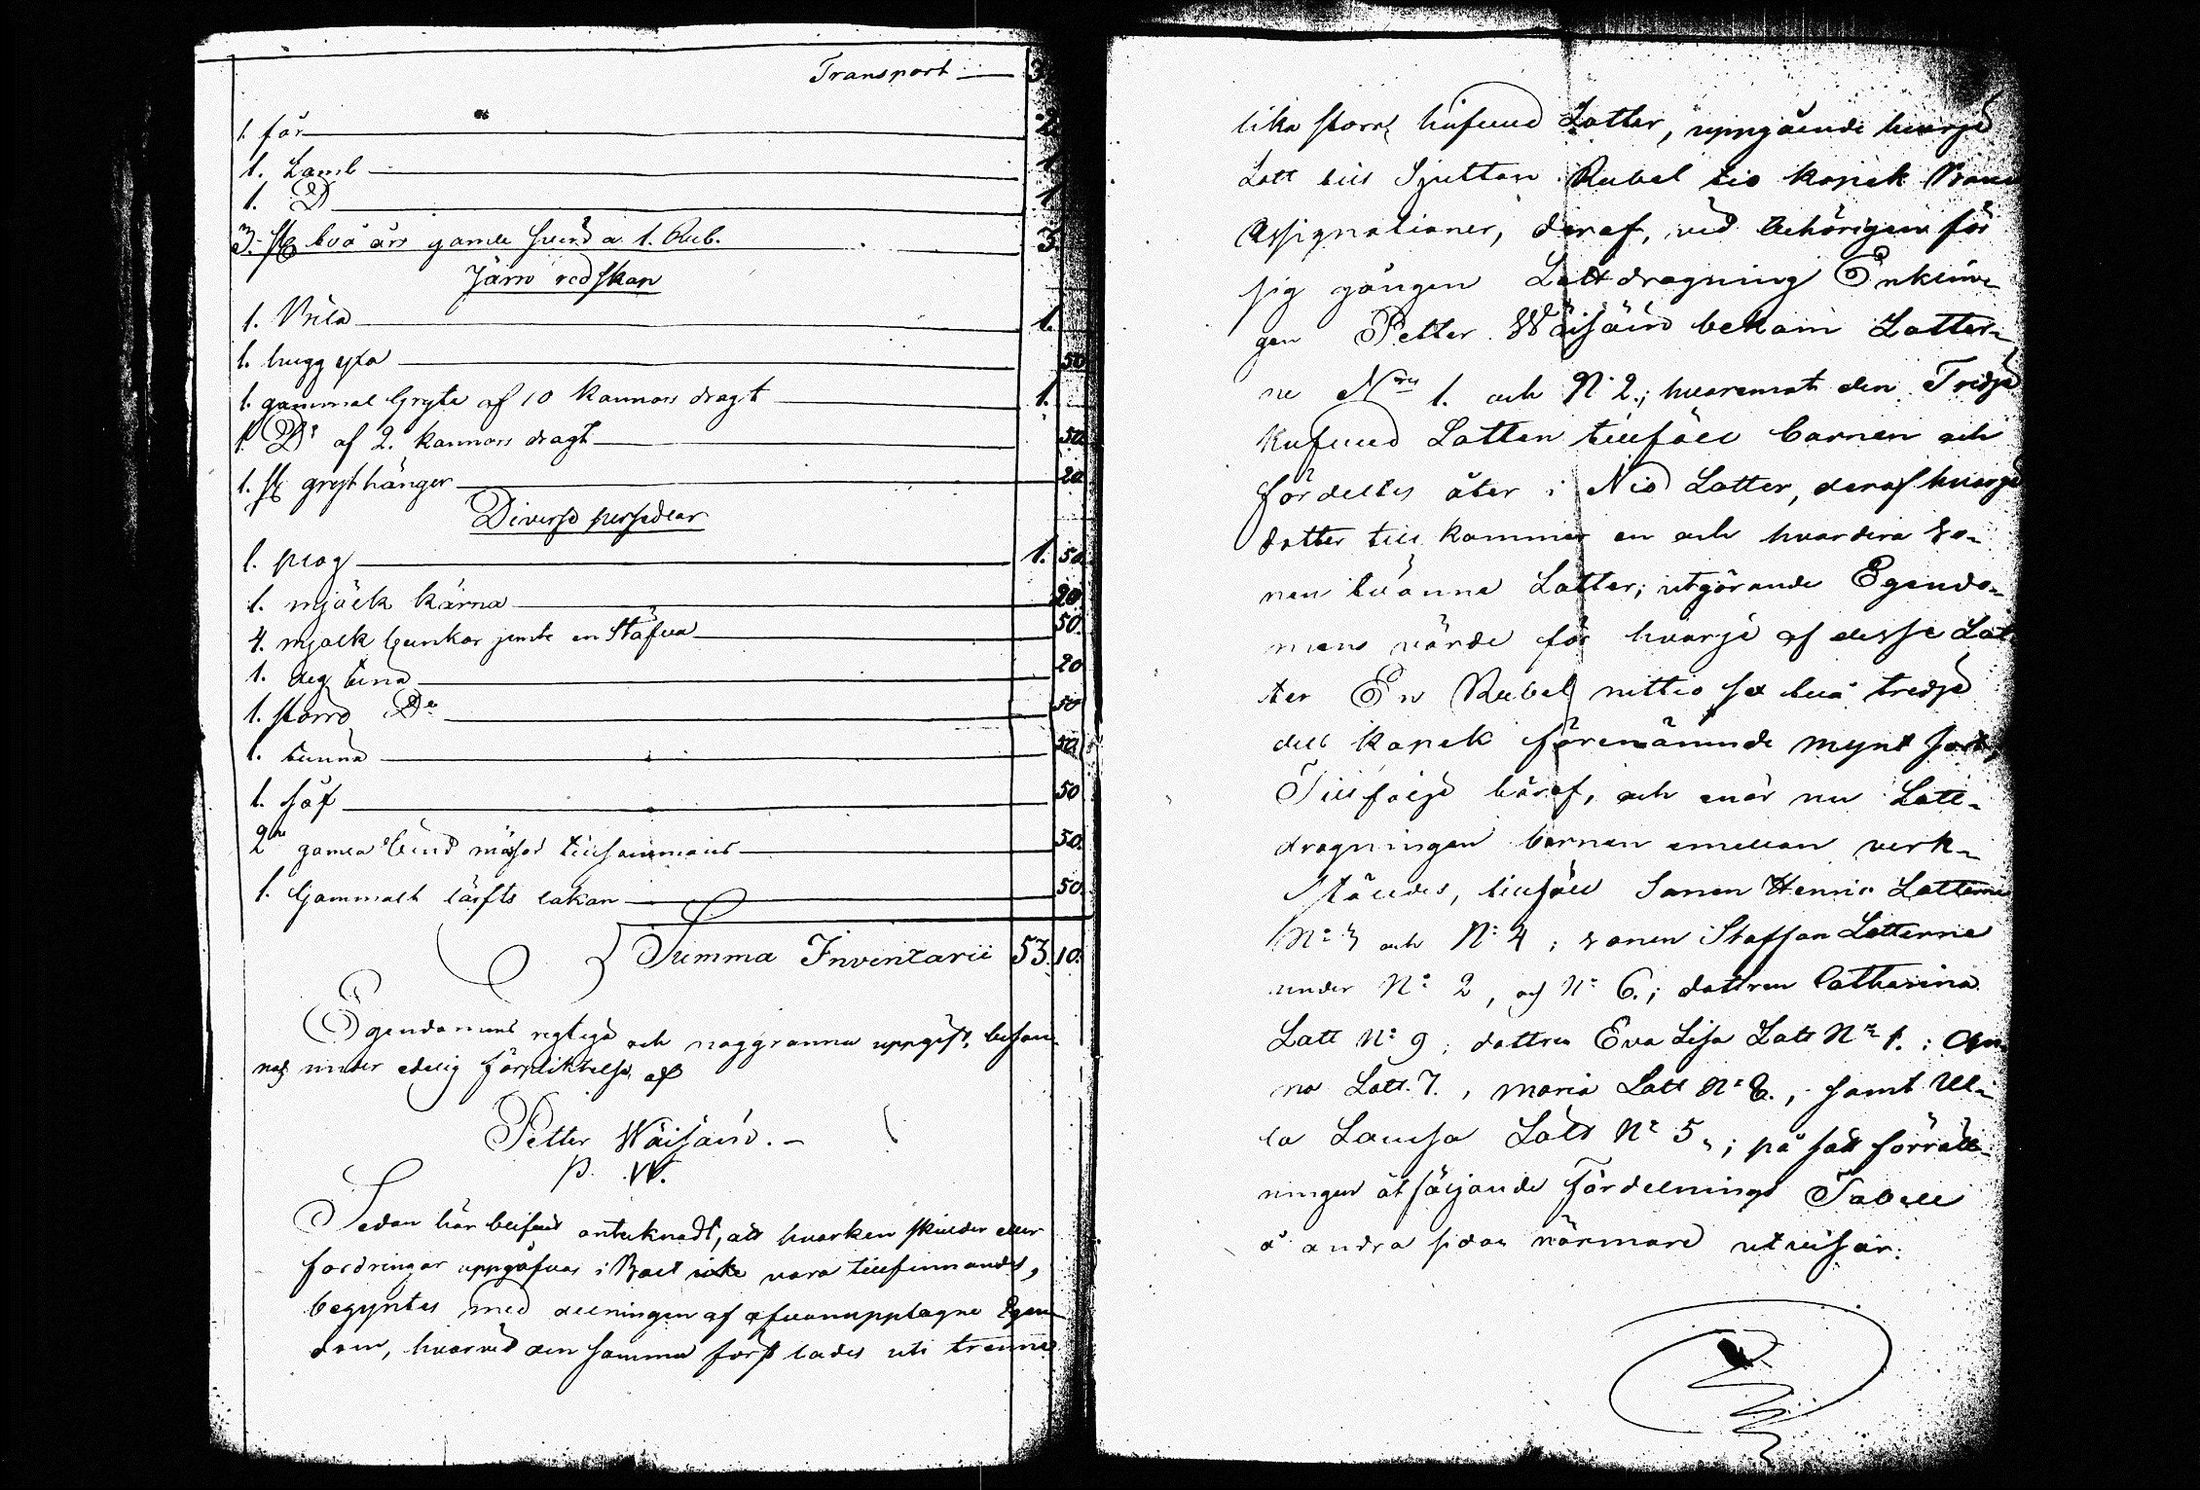 Transport
1. får 2
1. Lamb 1
1. D 1
3. st två års gamla svin a 1. Rub. 3.
Järn redskap
1. Bila 1.
1. hugg yxa 50
1. gammal Gryta af 10 kannors dragt 1.
1 D:o af 2. kannors dragt 50
1. st grythänger 20
Diverse persedlar
1. plog 1. 50
1. mjölk kärna 20
4. mjölk bunkar jemte en Stäfva 50.
1. deg tina 20
1. större D:o 50
1. tunna 50
1. såf 50
2ne gamla tillsammans 50.
1. Gammalt lärfts lakan 50.
Summa Inventarii 53. 10.
Egendomens regtiga och noggranna uppgift, besan-
nas under edelig förpliktelse af
Petter Wäisäin. -
P. W.
Sedan här blifvit anteknadt, att hvarken skulder eller
fordringar uppgåfvos i Boet vara tillfinnandes,
begyntes med delningen af ofvanupptagne Egen-
dom, hvarvid den samma först lades uti trenne
lika stora hufvud Lotter, uppgående hvarje
Lott till Sjutton Rubel tio kopek Banco
Assignationer, deraf, vid behörigen för
sig gången Lottdragning Enklin-
gen Petter Wäisäin bekom Lotter-
ne N:ris 1. och N:o 2.; hvaremot den Tredje
hufvud Lotten tillföll barnen och
fördeltes åter i Nio Lotter, deraf hvarje
dotter till kommer en och hvardera so-
nen tvänne Lotter; utgörande Egendo-
mens värde för hvarje af desse Lot-
ter En Rubel nittio två tredje
dels kopek förenämnde mynt sort,
Tillfölje häraf, och enär nu Lott-
dragningen barnen emellan verk-
ställdes, tillföll Sonen Henric Lotterne
N:o 3 och N:o 4; sonen Staffan Lotterne
under N:o 2, och N:o 6.; dottren Catharina
Lott N:o 9; dottren Eva Lisa Lott N:o 1.; An-
na Lott. 7., Maria Lott N:o 8., samt Ul-
la Lovisa Lott N:o 5,; på sätt förrätt-
ningen åtföljande Fördelnings Tabell
å andra sidan närmare utvisar.